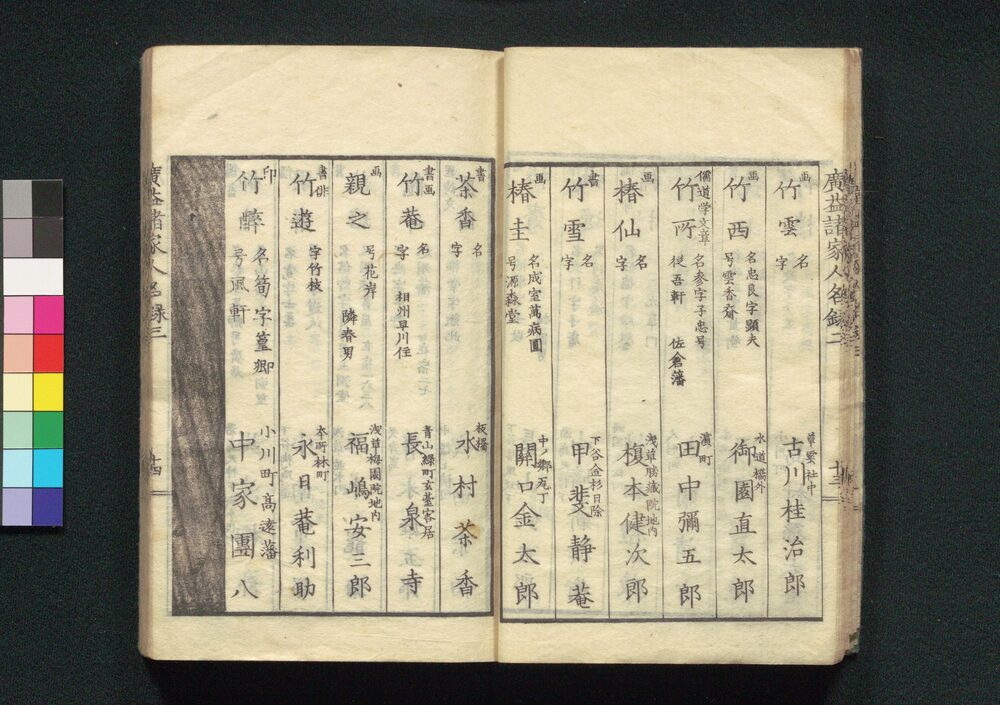 廣益諸家人名録二
十三
画
竹雲
名
字
草雲社中
古川桂治郎
画
竹西
名忠良字顕夫
号雲香齋
水道橋外
御園直太郎
儒道学文章
竹所
名参字子忠号
従吾軒
佐倉藩
濱町
田中彌五郎
画
椿仙
名
字
浅草勝蔵院地内
榎本健次郎
書
竹雪
名
字
下谷金杉日除
甲斐静菴
画
椿圭
名成室萬病圓
号源森堂
中ノ郷瓦丁
關口金太郎
書
茶香
名
字
板橋
水村茶香
書画
竹菴
名
字
相州早川住
青山緑町玄臺客居
長泉寺
画
親之
号花岸
隣春男
浅草梅園院地内
福嶋安三郎
書俳
竹遊
字竹枝
本所林町
永日菴利助
印
竹醉
名筍字篁卿
号凧軒
小川町高遠藩
中家團八
廣益諸家人名録三
十四